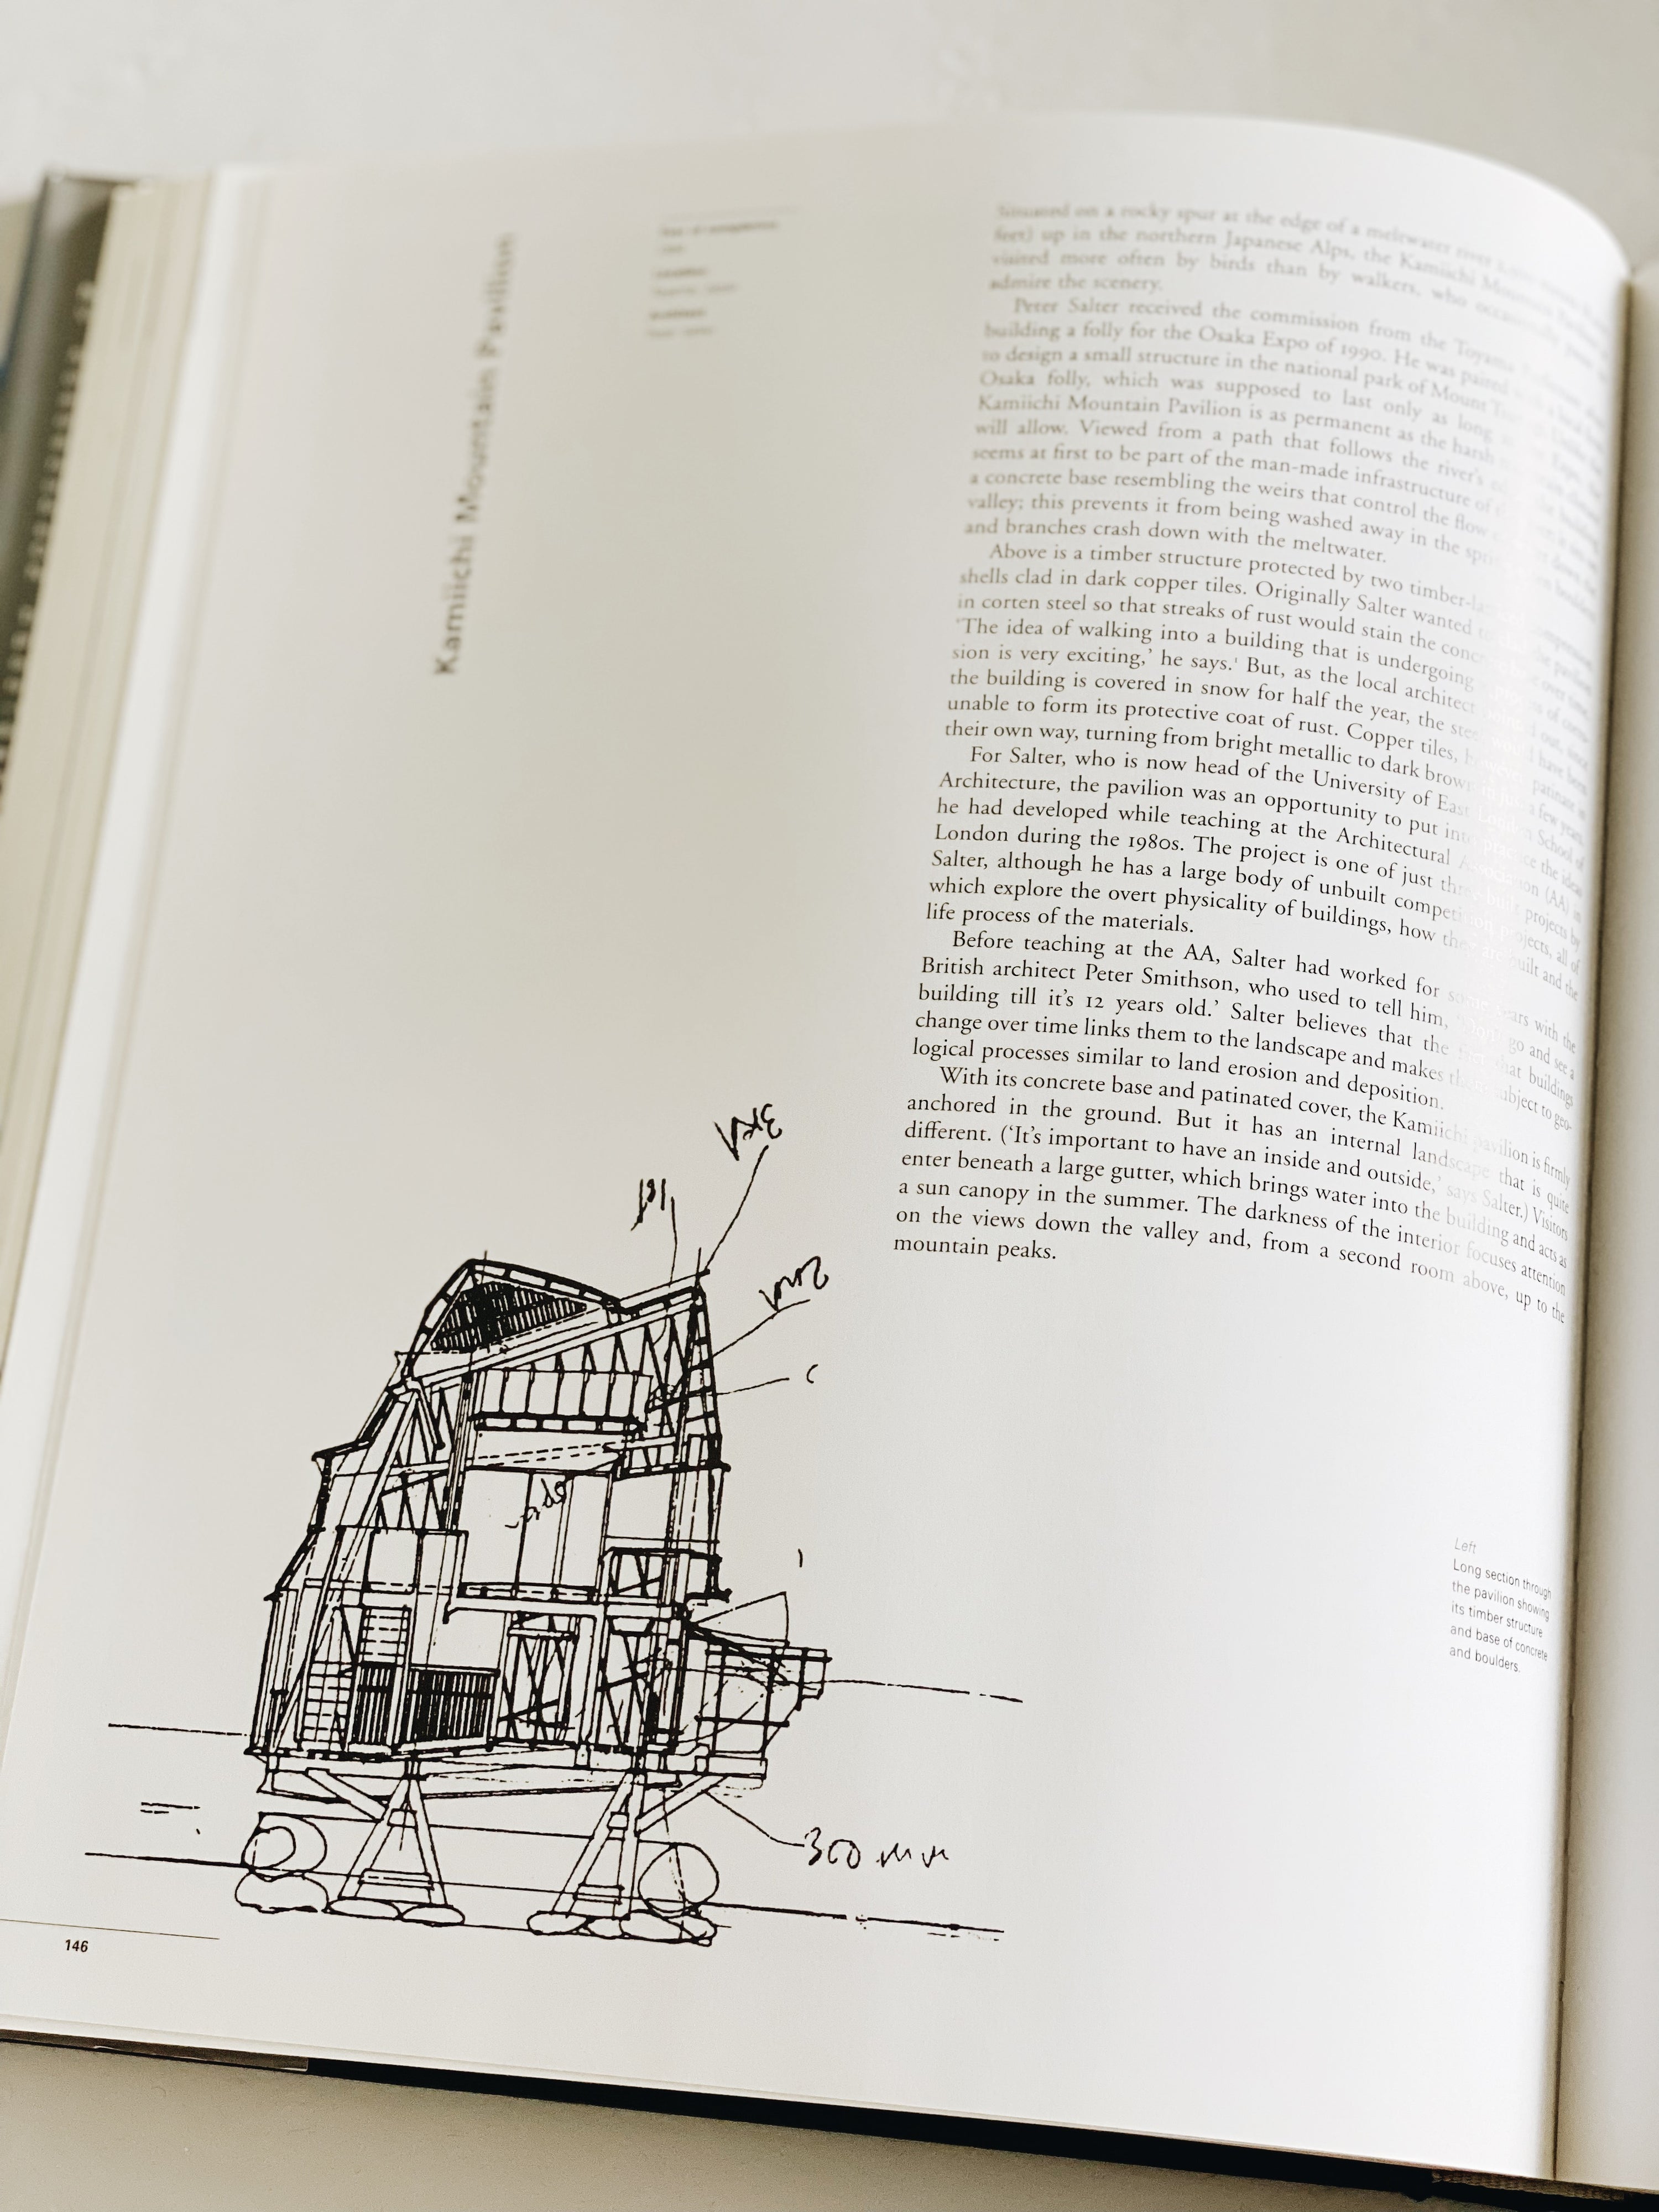 Kamiichi Mountain Pavilion
Situated on a rocky spur at the edge of a meltwater river
feet) up in the northern Japanese Alps, the Kamiichi Mountain
visited more often by birds than by walkers, who occasionally
admire the scenery.
Peter Salter received the commission from the Toyama
building a folly for the Osaka Expo of 1990. He was paired
to design a small structure in the national park of Mount
Osaka folly, which was supposed to last only as long
Kamiichi Mountain Pavilion is as permanent as the harsh
will allow. Viewed from a path that follows the river's
seems at first to be part of the man-made infrastructure of
a concrete base resembling the weirs that control the flow
valley; this prevents it from being washed away in the
and branches crash down with the meltwater.
Above is a timber structure protected by two
shells clad in dark copper tiles. Originally Salter wanted
in corten steel so that streaks of rust would stain the over time.
'The idea of walking into a building that is undergoing
sion is very exciting,' he says.¹ But, as the local architect out, since
the building is covered in snow for half the year, the have been
unable to form its protective coat of rust. Copper tiles, patinate in
their own way, turning from bright metallic to dark brown in just a few years.
For Salter, who is now head of the University of East London School of
Architecture, the pavilion was an opportunity to put into practice the ideas
he had developed while teaching at the Architectural Association (AA) in
London during the 1980s. The project is one of just three built projects by
Salter, although he has a large body of unbuilt competition projects, all of
which explore the overt physicality of buildings, how they are built and the
life process of the materials.
Before teaching at the AA, Salter had worked for some years with the
British architect Peter Smithson, who used to tell him, go and see a
building till it's 12 years old.' Salter believes that the fact that buildings
change over time links them to the landscape and makes them subject to geo-
logical processes similar to land erosion and deposition.
With its concrete base and patinated cover, the Kamiichi pavilion is firmly
anchored in the ground. But it has an internal landscape that is quite
different. ('It's important to have an inside and outside,' says Salter.) Visitors
enter beneath a large gutter, which brings water into the building and acts as
a sun canopy in the summer. The darkness of the interior focuses attention
on the views down the valley and, from a second room above, up to the
mountain peaks.
300 mm
Left
Long section through
the pavilion showing
its timber structure
and base of concrete
and boulders.
146